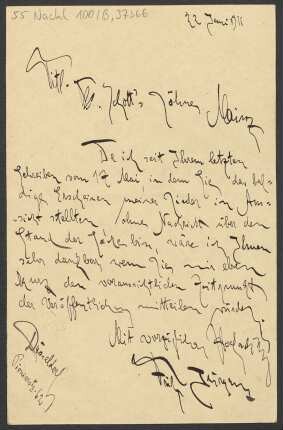 55 Nachl 100/B,37366
22 Juni 1911
Titl. B. Schott's Söhne, Mainz
Da ich seit Ihrem letzten
Schreiben vom 17 Mai in dem Sie das bal-
dige Erscheinen meiner Lieder in Aus-
sicht stellten ohne Nachricht über den
Stand der Sache bin, wäre ich Ihnen
sehr dankbar wenn Sie mir eben
den voraussichtlichen Zeitpunkt
der Veröffentlichung mitteilen würden.
Mit vorzüglicher Hochachtung
Fritz Jürgens
Düsseldorf